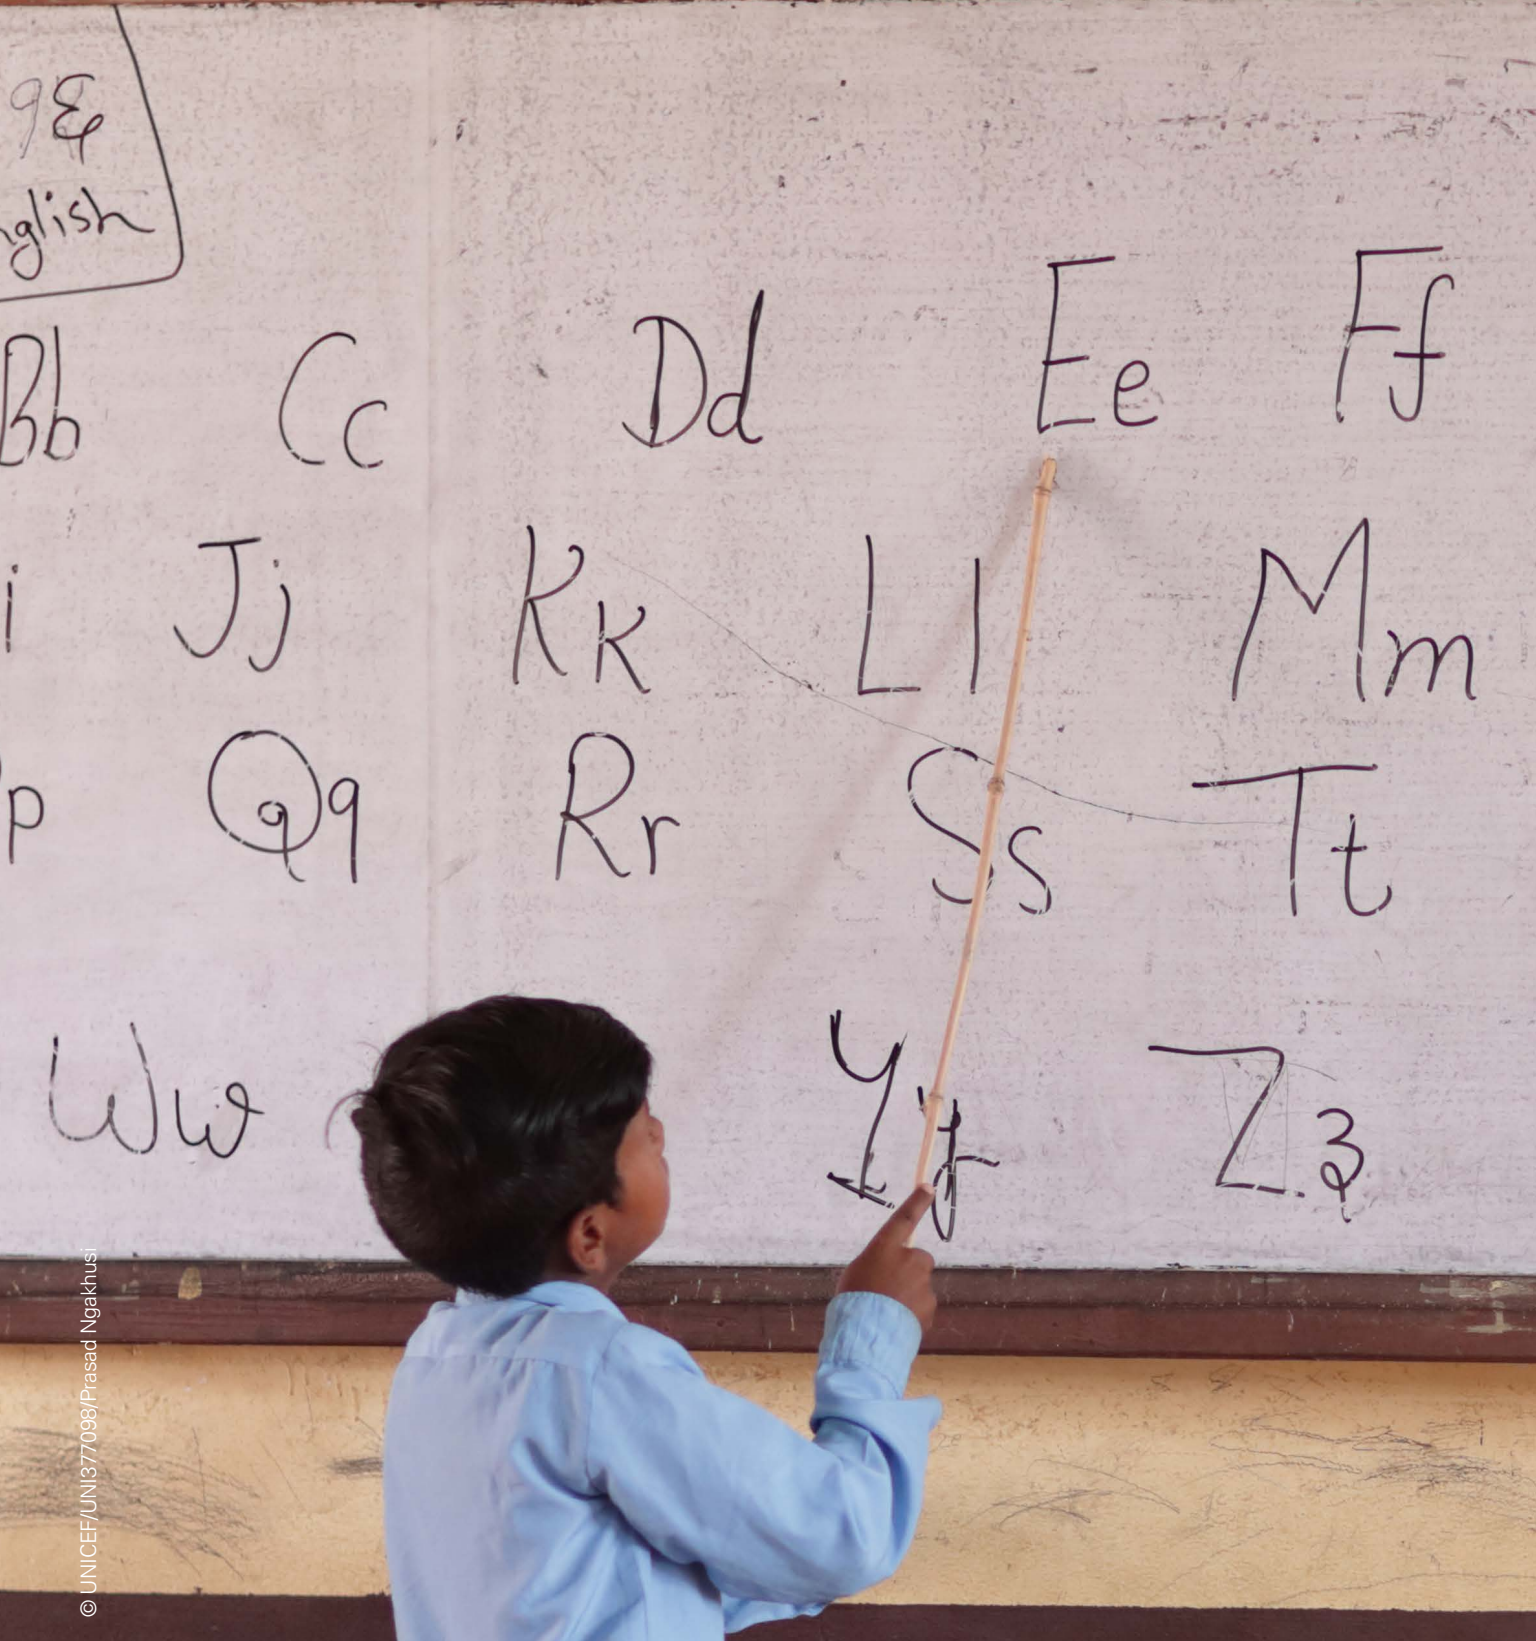 १६
nglish
Bb Cc Dd Ee Ff
i Jj Kk Ll Mm
p Qq Rr Ss Tt
Ww Yy Zz
© UNICEF/UNI377098/Prasad Ngakhusi